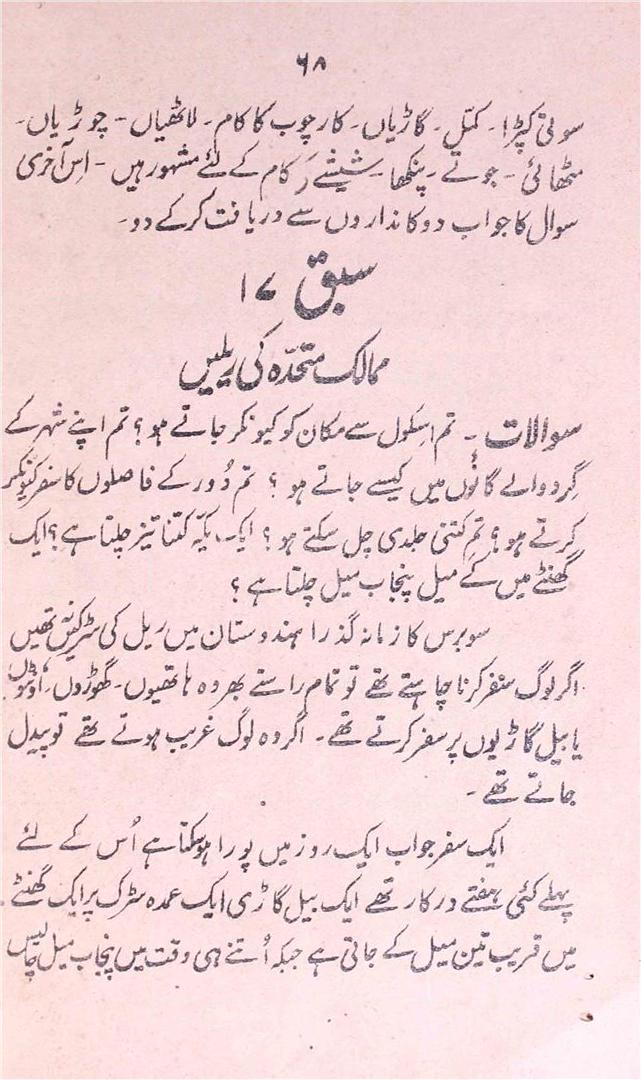 ۶۸
سوتی کپڑا - کمّل - گاڑیاں - کارچوب کا کام - لاٹھیاں - چوڑیاں -
مٹھائی - جوتے - پنکھا - شیشے کے کام کے لئے مشہور ہیں - اِس آخری
سوال کا جواب دوکانداروں سے دریافت کرکے دو -
سبق ۱۷
ممالک متحدّہ کی ریلیں
سوالات - تم اسکول سے مکان کو کیونکر جاتے ہو ؟ تم اپنے شہر کے
گِرد والے گانوٴں میں کیسے جاتے ہو ؟ تم دُور کے فاصلوں کا سفر کیونکر
کرتے ہو ؟ تم کتنی جلدی چل سکتے ہو ؟ ایک یکّہ کتنا تیز چلتا ہے ؟ ایک
گھنٹے میں کَے میل پنجاب میل چلتا ہے ؟
سو برس کا زمانہ گذرا ہندوستان میں ریل کی سڑکیں نہ تھیں
اگر لوگ سفر کرنا چاہتے تھے تو تمام راستے بھر وہ ہاتھیوں - گھوڑوں - اونٹوں
یا بیل گاڑیوں پر سفر کرتے تھے - اگر وہ لوگ غریب ہوتے تھے تو پیدل
جاتے تھے -
ایک سفر جو اب ایک روز میں پورا ہوسکتا ہے اُس کے لئے
پہلے کئی ہفتے درکار تھے ایک بیل گاڑی ایک عمدہ سڑک پر ایک گھنٹے
میں قریب تین میل کے جاتی ہے جبکہ اُتنے ہی وقت میں پنجاب میل چالیس